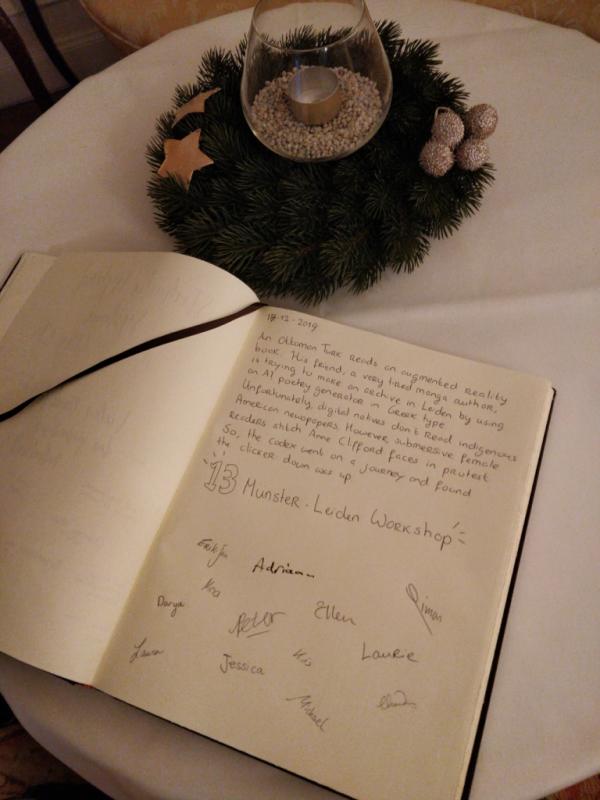 17-12-2019
An Ottoman Turk reads an augmented reality
book. His friend, a very tired manga author,
is trying to make an archive in Leiden by using
an AI poetry generator in Greek type.
Unfortunately, digital natives don't read indigenous
American newspapers. However submersive female
readers stitch Anne Clifford faces in protest
So, the codex went on a journey and found
the clicker down
up
13 Munster - Leiden Workshop
Adriaan
Darya
Peter
Ellen
Laurie
Laura
Jessica
Michael